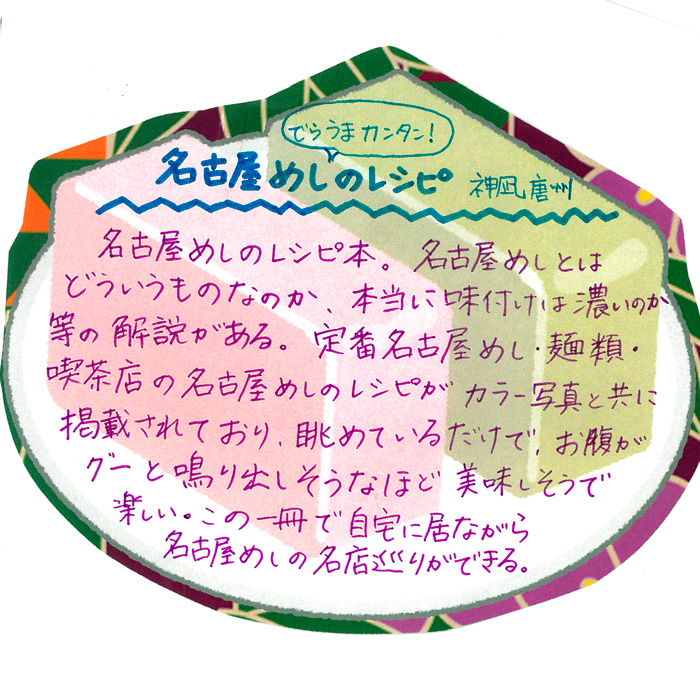 でらうまカンタン!
名古屋めしのレシピ 神凪唐州
名古屋めしのレシピ本。名古屋めしとは
どういうものなのか、本当に味付けは濃いのか
等の解説がある。定番名古屋めし・麺類・
喫茶店の名古屋めしのレシピがカラー写真と共に
掲載されており、眺めているだけで、お腹が
グーと鳴り出しそうなほど美味しそうで
楽しい。この一冊で自宅に居ながら
名古屋めしの名店巡りができる。